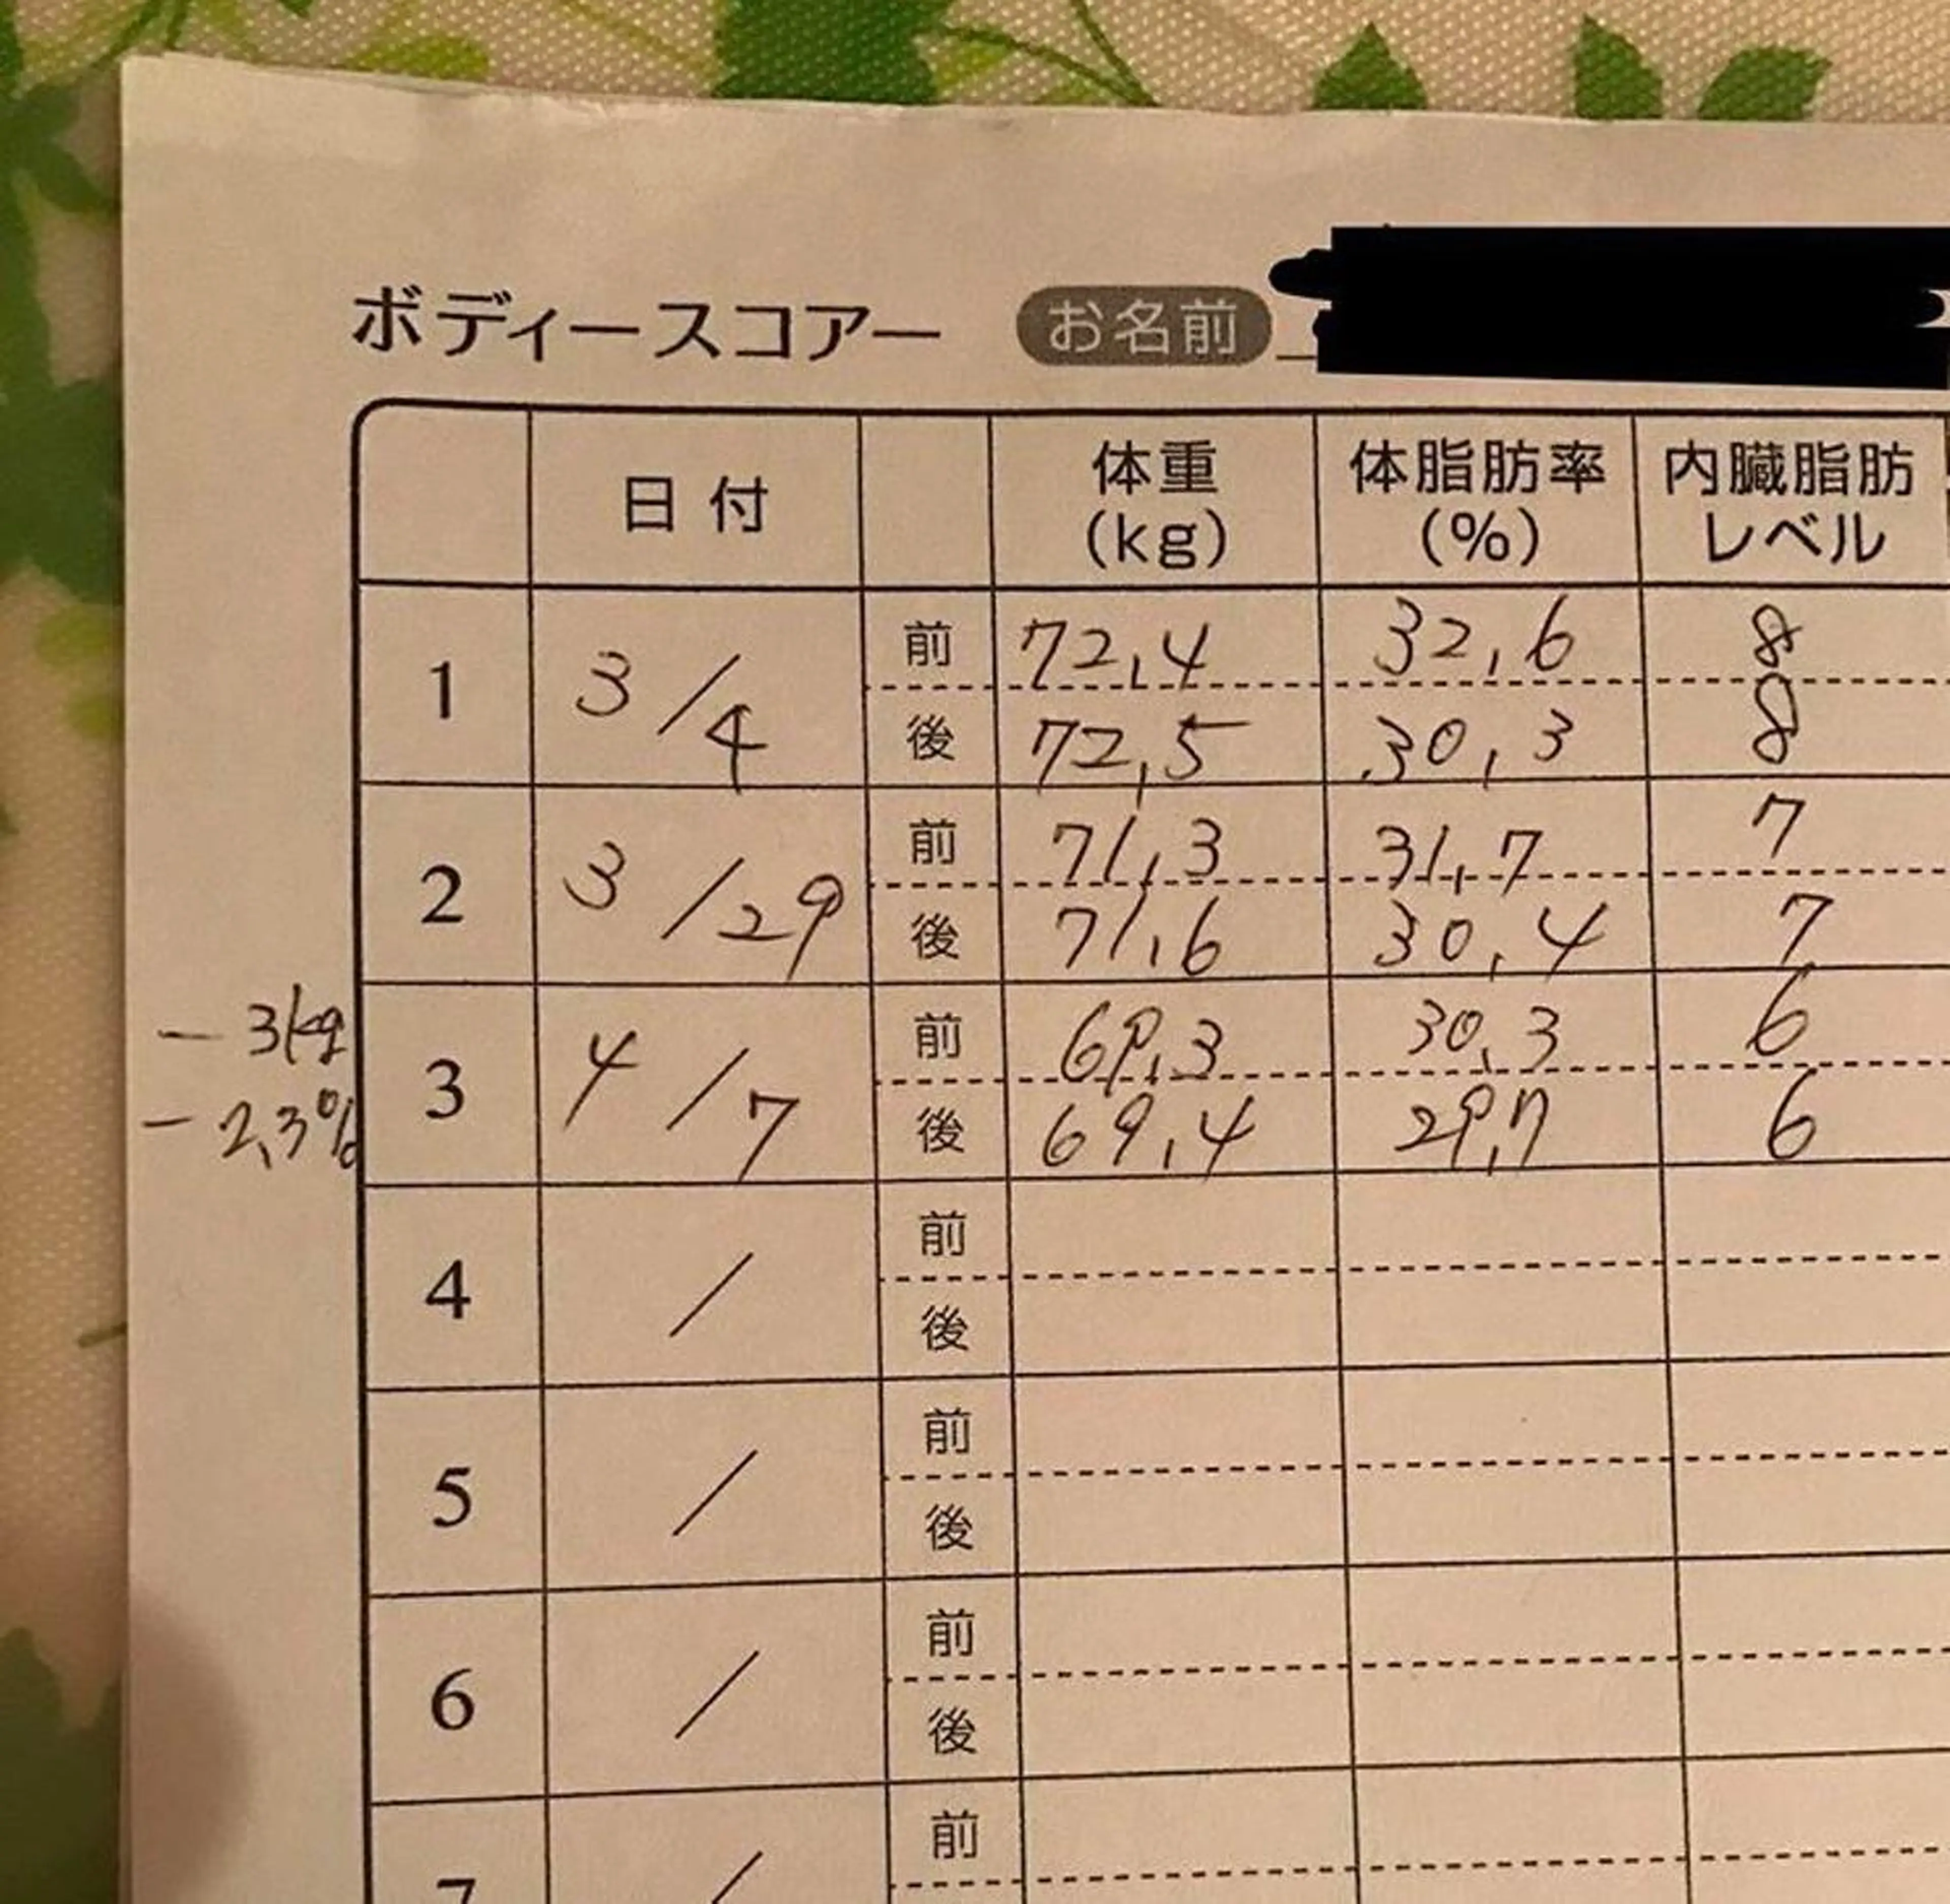 ボディースコアー お名前
日付 体重(kg) 体脂肪率(%) 内臓脂肪レベル
1 3/4 前 72,4 32,6 8
後 72,5 30,3 8
2 3/29 前 71,3 31,7 7
後 71,6 30,4 7
-3kg
3 4/7 前 69,3 30,3 6
-2,3%
後 69,4 29,7 6
4 / 前
後
5 / 前
後
6 / 前
後
7 / 前